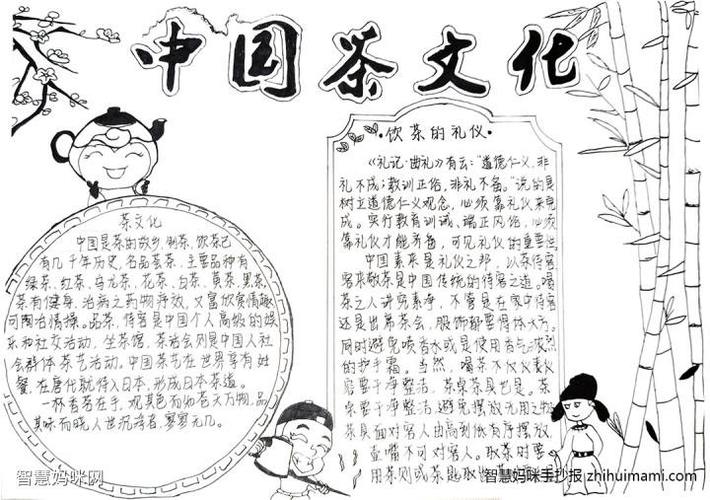 中国茶文化
茶文化
中国是茶的故乡,制茶、饮茶已
有几千年历史,名品荟萃,主要品种有
绿茶、红茶、乌龙茶、花茶、白茶、黄茶、黑茶。
茶有健身、治病之药物疗效,又富欣赏情趣,
可陶冶情操。品茶、待客是中国个人高级的娱
乐和社交活动,坐茶馆、茶话会则是中国人社
会群体茶艺活动。中国茶艺在世界享有
誉,在唐代就传入日本,形成日本茶道。
一杯香茶在手,观其色而
其味而晓人世沉浮者,寥寥无几。
饮茶的礼仪
《礼记·曲礼》有云:“道德仁义,非
礼不成;教训正俗,非礼不备。”说的是
树立道德仁义观念,必须靠礼仪来完
成。实行教育训诫、端正风俗,必须
靠礼仪才能齐备,可见礼仪的重要性。
中国素来是礼仪之邦,以茶待客、
客来敬茶是中国传统的待客之道。喝
茶之人讲究素净,不管是在家中待客
还是出席茶会,服饰都要得体大方。
同时避免喷香水或是使用香气浓烈
的护手霜。当然,喝茶不仅仪表仪
容要干净整洁,茶桌茶具也是。茶
桌要干净整洁,避免摆放无用之物,
茶具面对客人由高到低有序摆放,
壶嘴不可对客人。取茶时要
用茶则或茶匙取
智慧妈咪网
智慧妈咪手抄报 zhihuimami.com